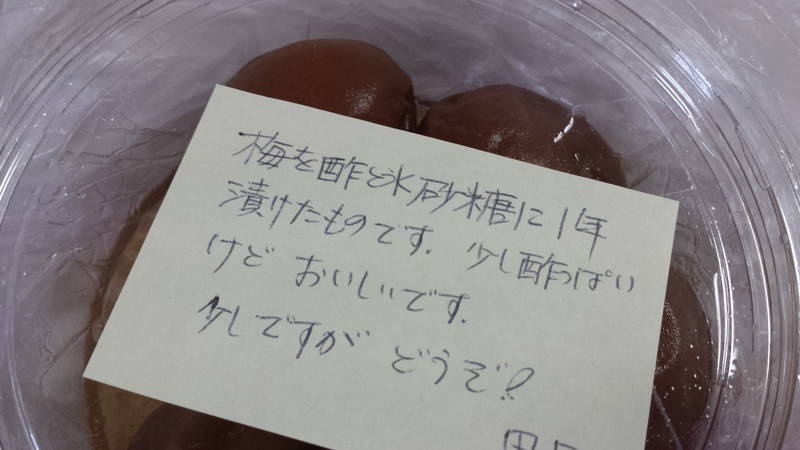 梅を酢と氷砂糖に1年
漬けたものです。少し酢っぱい
けど おいしいです。
少しですが どうぞ!